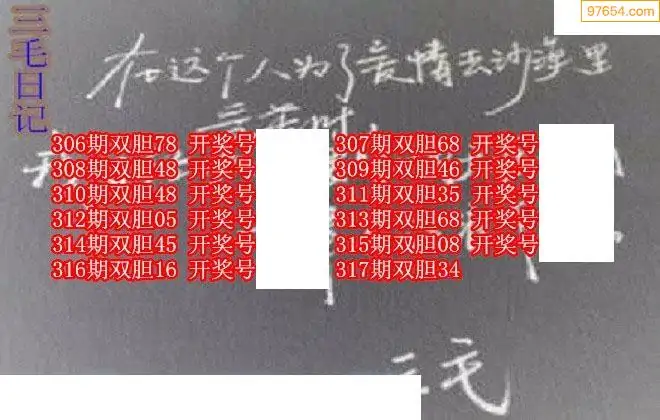 97654.com
三毛日记
在这个人为了爱情去沙漠里
306期双胆78 开奖号
307期双胆68 开奖号
308期双胆48 开奖号
309期双胆46 开奖号
310期双胆48 开奖号
311期双胆35 开奖号
312期双胆05 开奖号
313期双胆68 开奖号
314期双胆45 开奖号
315期双胆08 开奖号
316期双胆16 开奖号
317期双胆34
三毛